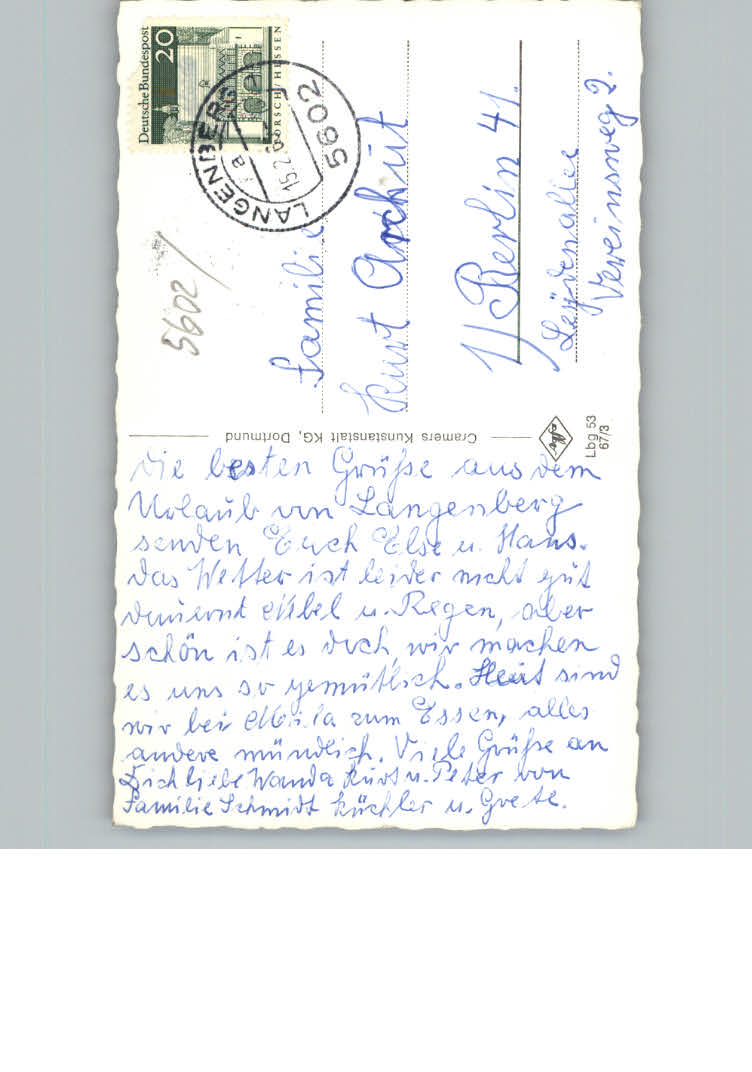 Deutsche Bundespost
20
LORSCH/HESSEN
5602 LANGENBERG
a
15.2.
5602
Familie
Kurt Archut
1/ Berlin 41.
Leydenallee
Vereinsweg 2.
Cramers Kunstanstalt KG, Dortmund
Lbg 53
67/3
Die besten Grüße aus dem
Urlaub von Langenberg
senden Euch Else u. Hans.
Das Wetter ist leider nicht gut
dauernt Nebel u. Regen, aber
schön ist es doch, wir machen
es uns so gemütlich. Heut sind
wir bei zum Essen, alles
andere mündlich. Viele Grüße an
Dich liebe Wanda Kurt u. Peter von
Familie Schmidt Küchler u. Grete.